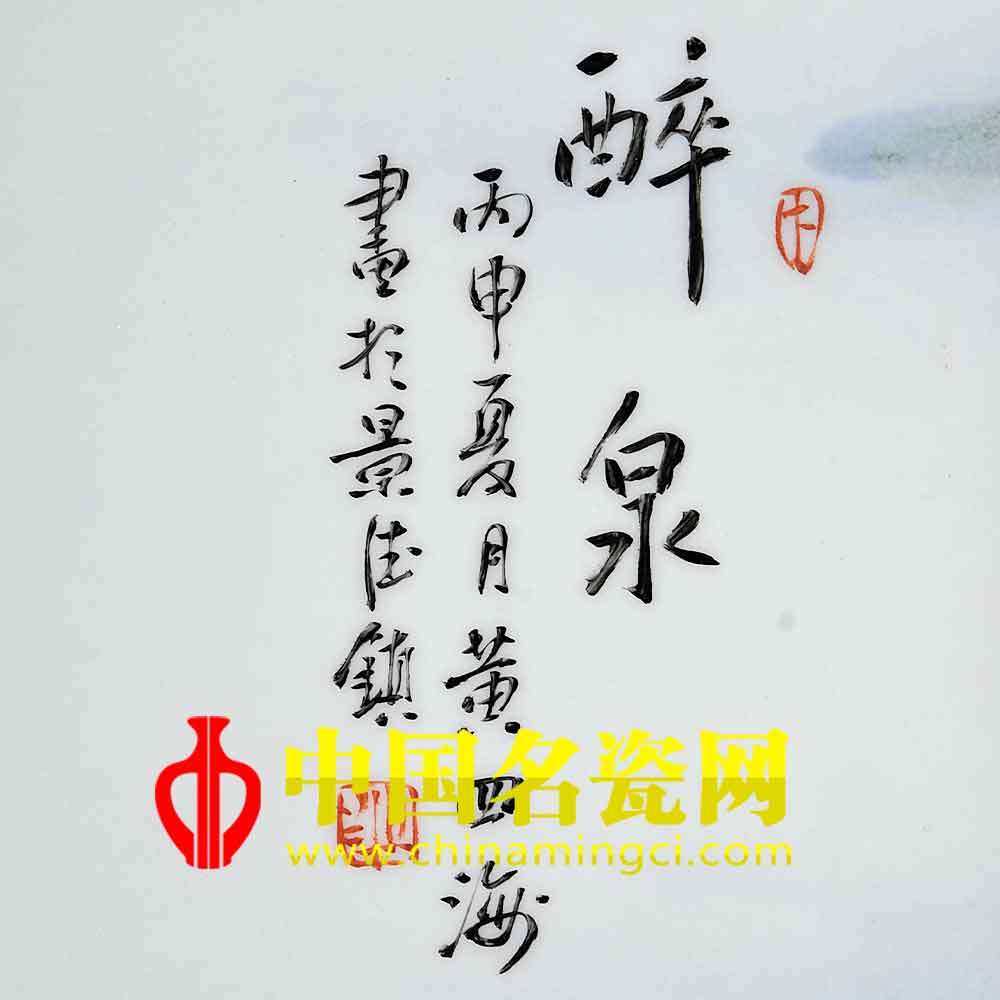 醉泉
丙申夏月黄四海
畫於景德鎮
中国名瓷网
www.chinamingci.com